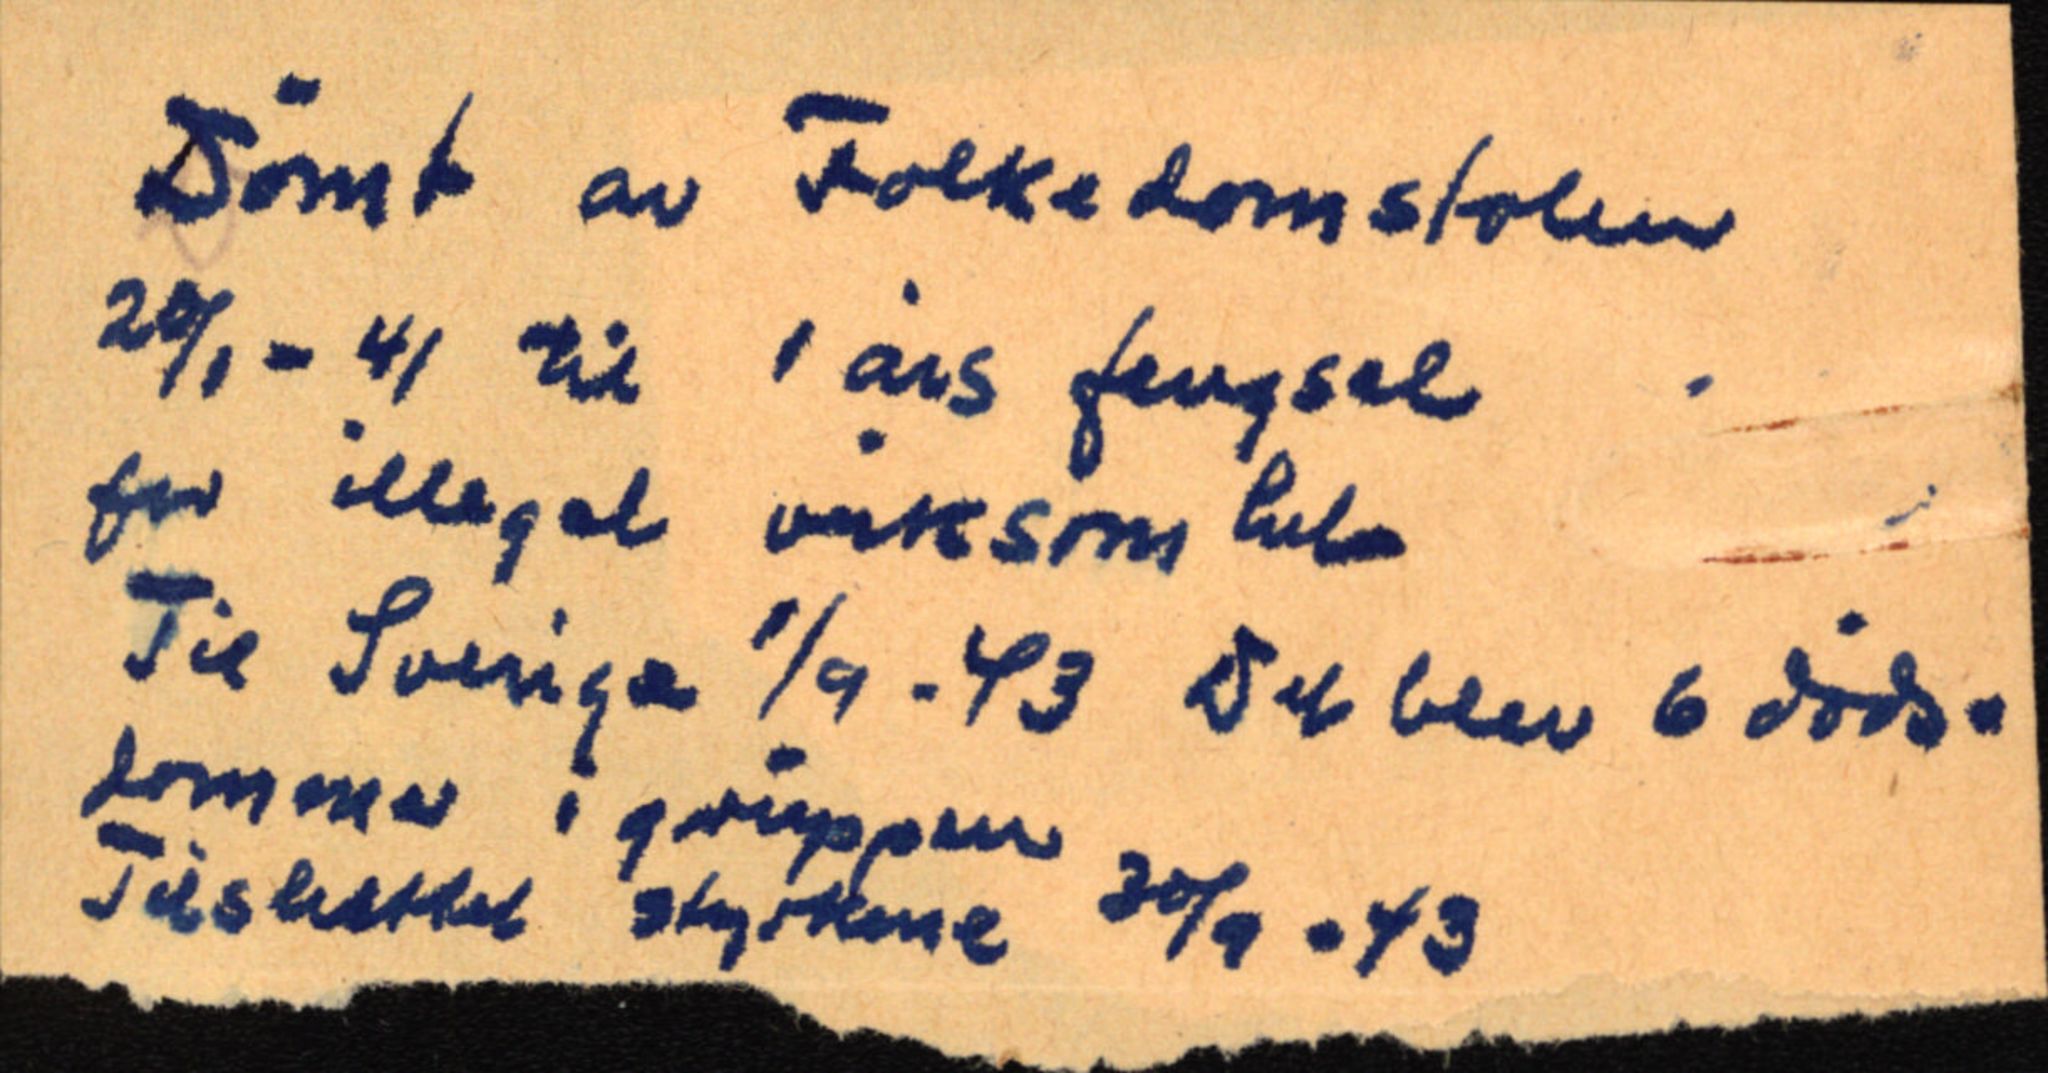 Dömt av Folkedomstolen
20/1 - 41 til 1 års fengsel
for illegal virksomhet
Til Sverige 1/9 - 43 Det blev 6 døds-
dommer i gruppen
Tilsluttet styrkene 30/9 - 43